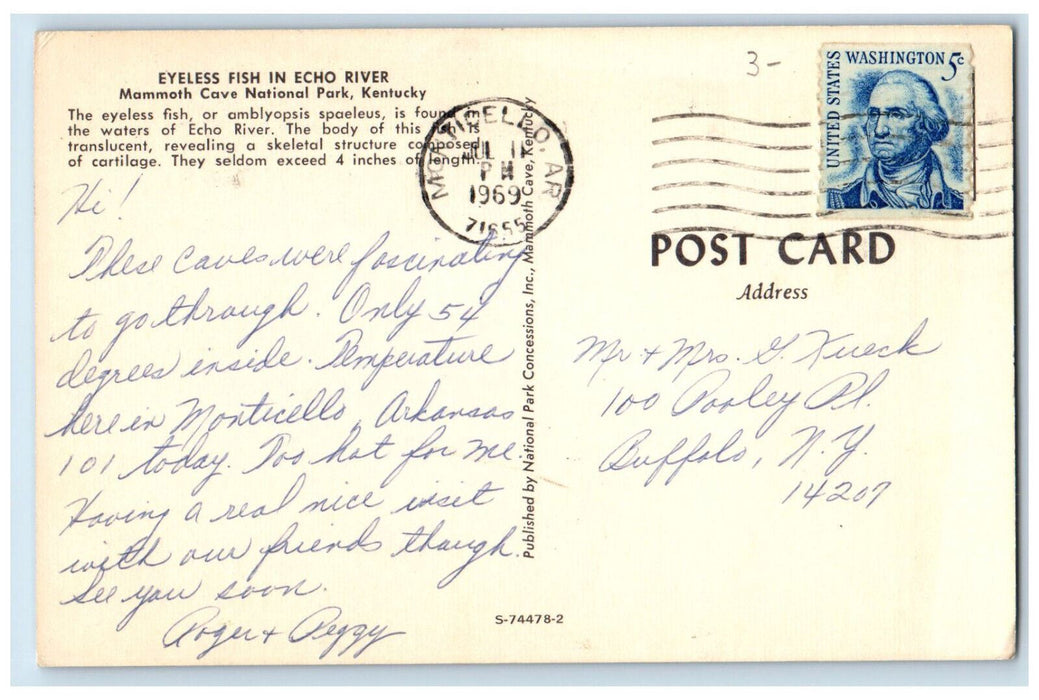 EYELESS FISH IN ECHO RIVER
Mammoth Cave National Park, Kentucky
The eyeless fish, or amblyopsis spaeleus, is found in
the waters of Echo River. The body of this fish is
translucent, revealing a skeletal structure composed
of cartilage. They seldom exceed 4 inches of length.
Hi!
These caves were fascinating
to go through. Only 54
degrees inside. Temperature
here in Monticello, Arkansas
101 today. Too hot for me.
Having a real nice visit
with our friends though.
See you soon.
Roger & Peggy
S-74478-2
Published by National Park Concessions, Inc., Mammoth Cave, Kentucky
MONTICELLO, AR
JUL 11
PM
1969
71655
3-
UNITED STATES
WASHINGTON 5c
POST CARD
Address
Mr + Mrs. G. Kueck
100 Pooley Pl.
Buffalo, N.Y.
14207